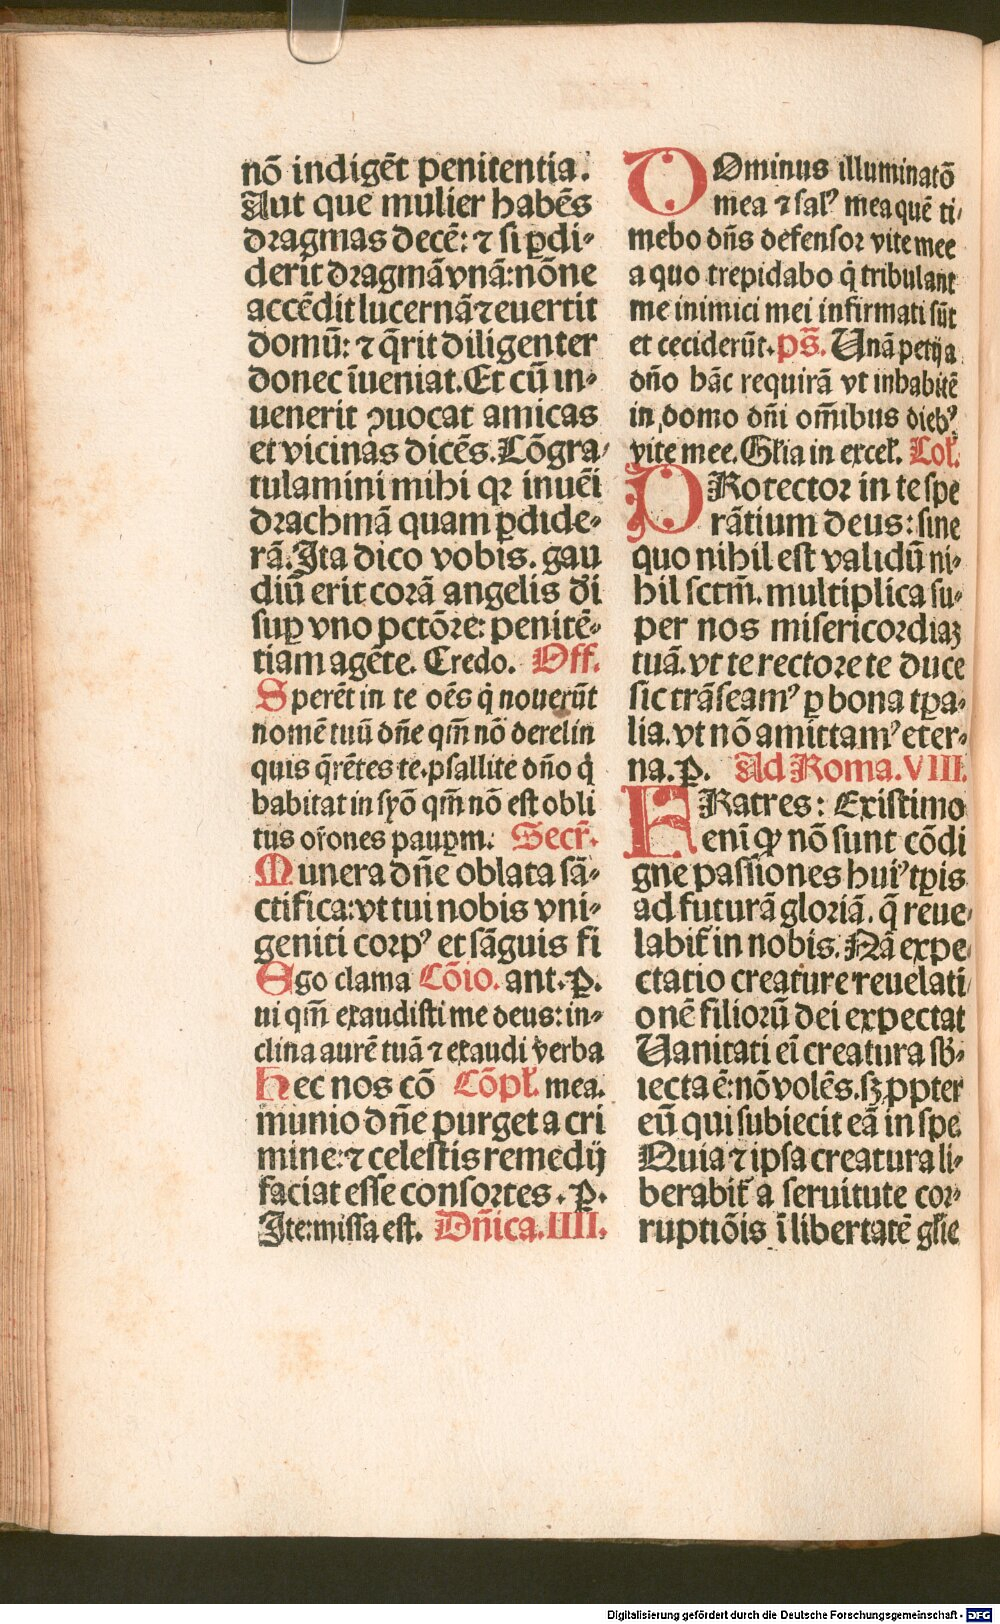 nō indigēt penitentia.
Aut que mulier habēs
dragmas decē: ⁊ si ꝑdi-
derit dragmā vnā: nōne
accēdit lucernā ⁊ euertit
domū: ⁊ q̄rit diligenter
donec īueniat. Et cū in-
uenerit ꝯuocat amicas
et vicinas dicēs. Cōgra-
tulamini mihi qꝛ inuēi
drachmā quam ꝑdide-
rā. Ita dico vobis. gau
diū erit corā angelis d̄i
suꝑ vno pctōre: penitē-
tiam agēte. Credo. Off.
Sperēt in te oēs q̇ nouerūt
nomē tuū dn̄e qm̄ nō derelin
quis q̄rētes te. psallite dn̄o q̇
habitat in syō qm̄ nō est obli
tus or̄ones pauꝑm. Secr̄.
Munera dn̄e oblata sā-
ctifica: vt tui nobis vni-
geniti corpꝰ et sāguis fi
Ego clama Cōio. ant. ꝑ.
ui qm̄ exaudisti me deus: in-
clina aurē tuā ⁊ exaudi verba
hec nos cō Cōpl̄. mea.
munio dn̄e purget a cri
mine: ⁊ celestis remedij
faciat esse consortes. ꝑ.
Ite: missa est. Dn̄ica. IIII.
DOminus illuminatō
mea ⁊ salꝰ mea quē ti-
mebo dn̄s defensor vite mee
a quo trepidabo q̇ tribulant
me inimici mei infirmati sūt
et ceciderūt. ps̄. Unā petij a
dn̄o hāc requirā vt inhabitē
in domo dn̄i om̄ibus diebꝰ
vite mee. Gl̄ia in excel̄. Col̄.
PRotector in te spe
rātium deus: sine
quo nihil est validū ni-
hil sctm̄. multiplica su-
per nos misericordiaꝫ
tuā. vt te rectore te duce
sic trāseamꝰ ꝑ bona tꝑa-
lia. vt nō amittamꝰ eter-
na. ꝑ. Ad Roma. VIII.
FRatres: Existimo
enī ꝙ nō sunt cōdi
gne passiones huiꝰ tꝑis
ad futurā gloriā. q̄ reue-
labit̄ in nobis. Nā expe-
ctatio creature reuelati-
onē filiorū dei expectat
Uanitati ei creatura sb̄-
iecta ē: nō volēs. sꝫ ꝓpter
eū qui subiecit eā in spe
Quia ⁊ ipsa creatura li-
berabit̄ a seruitute cor-
ruptiōis ī libertatē gl̄ie
Digitalisierung gefördert durch die Deutsche Forschungsgemeinschaft - DFG